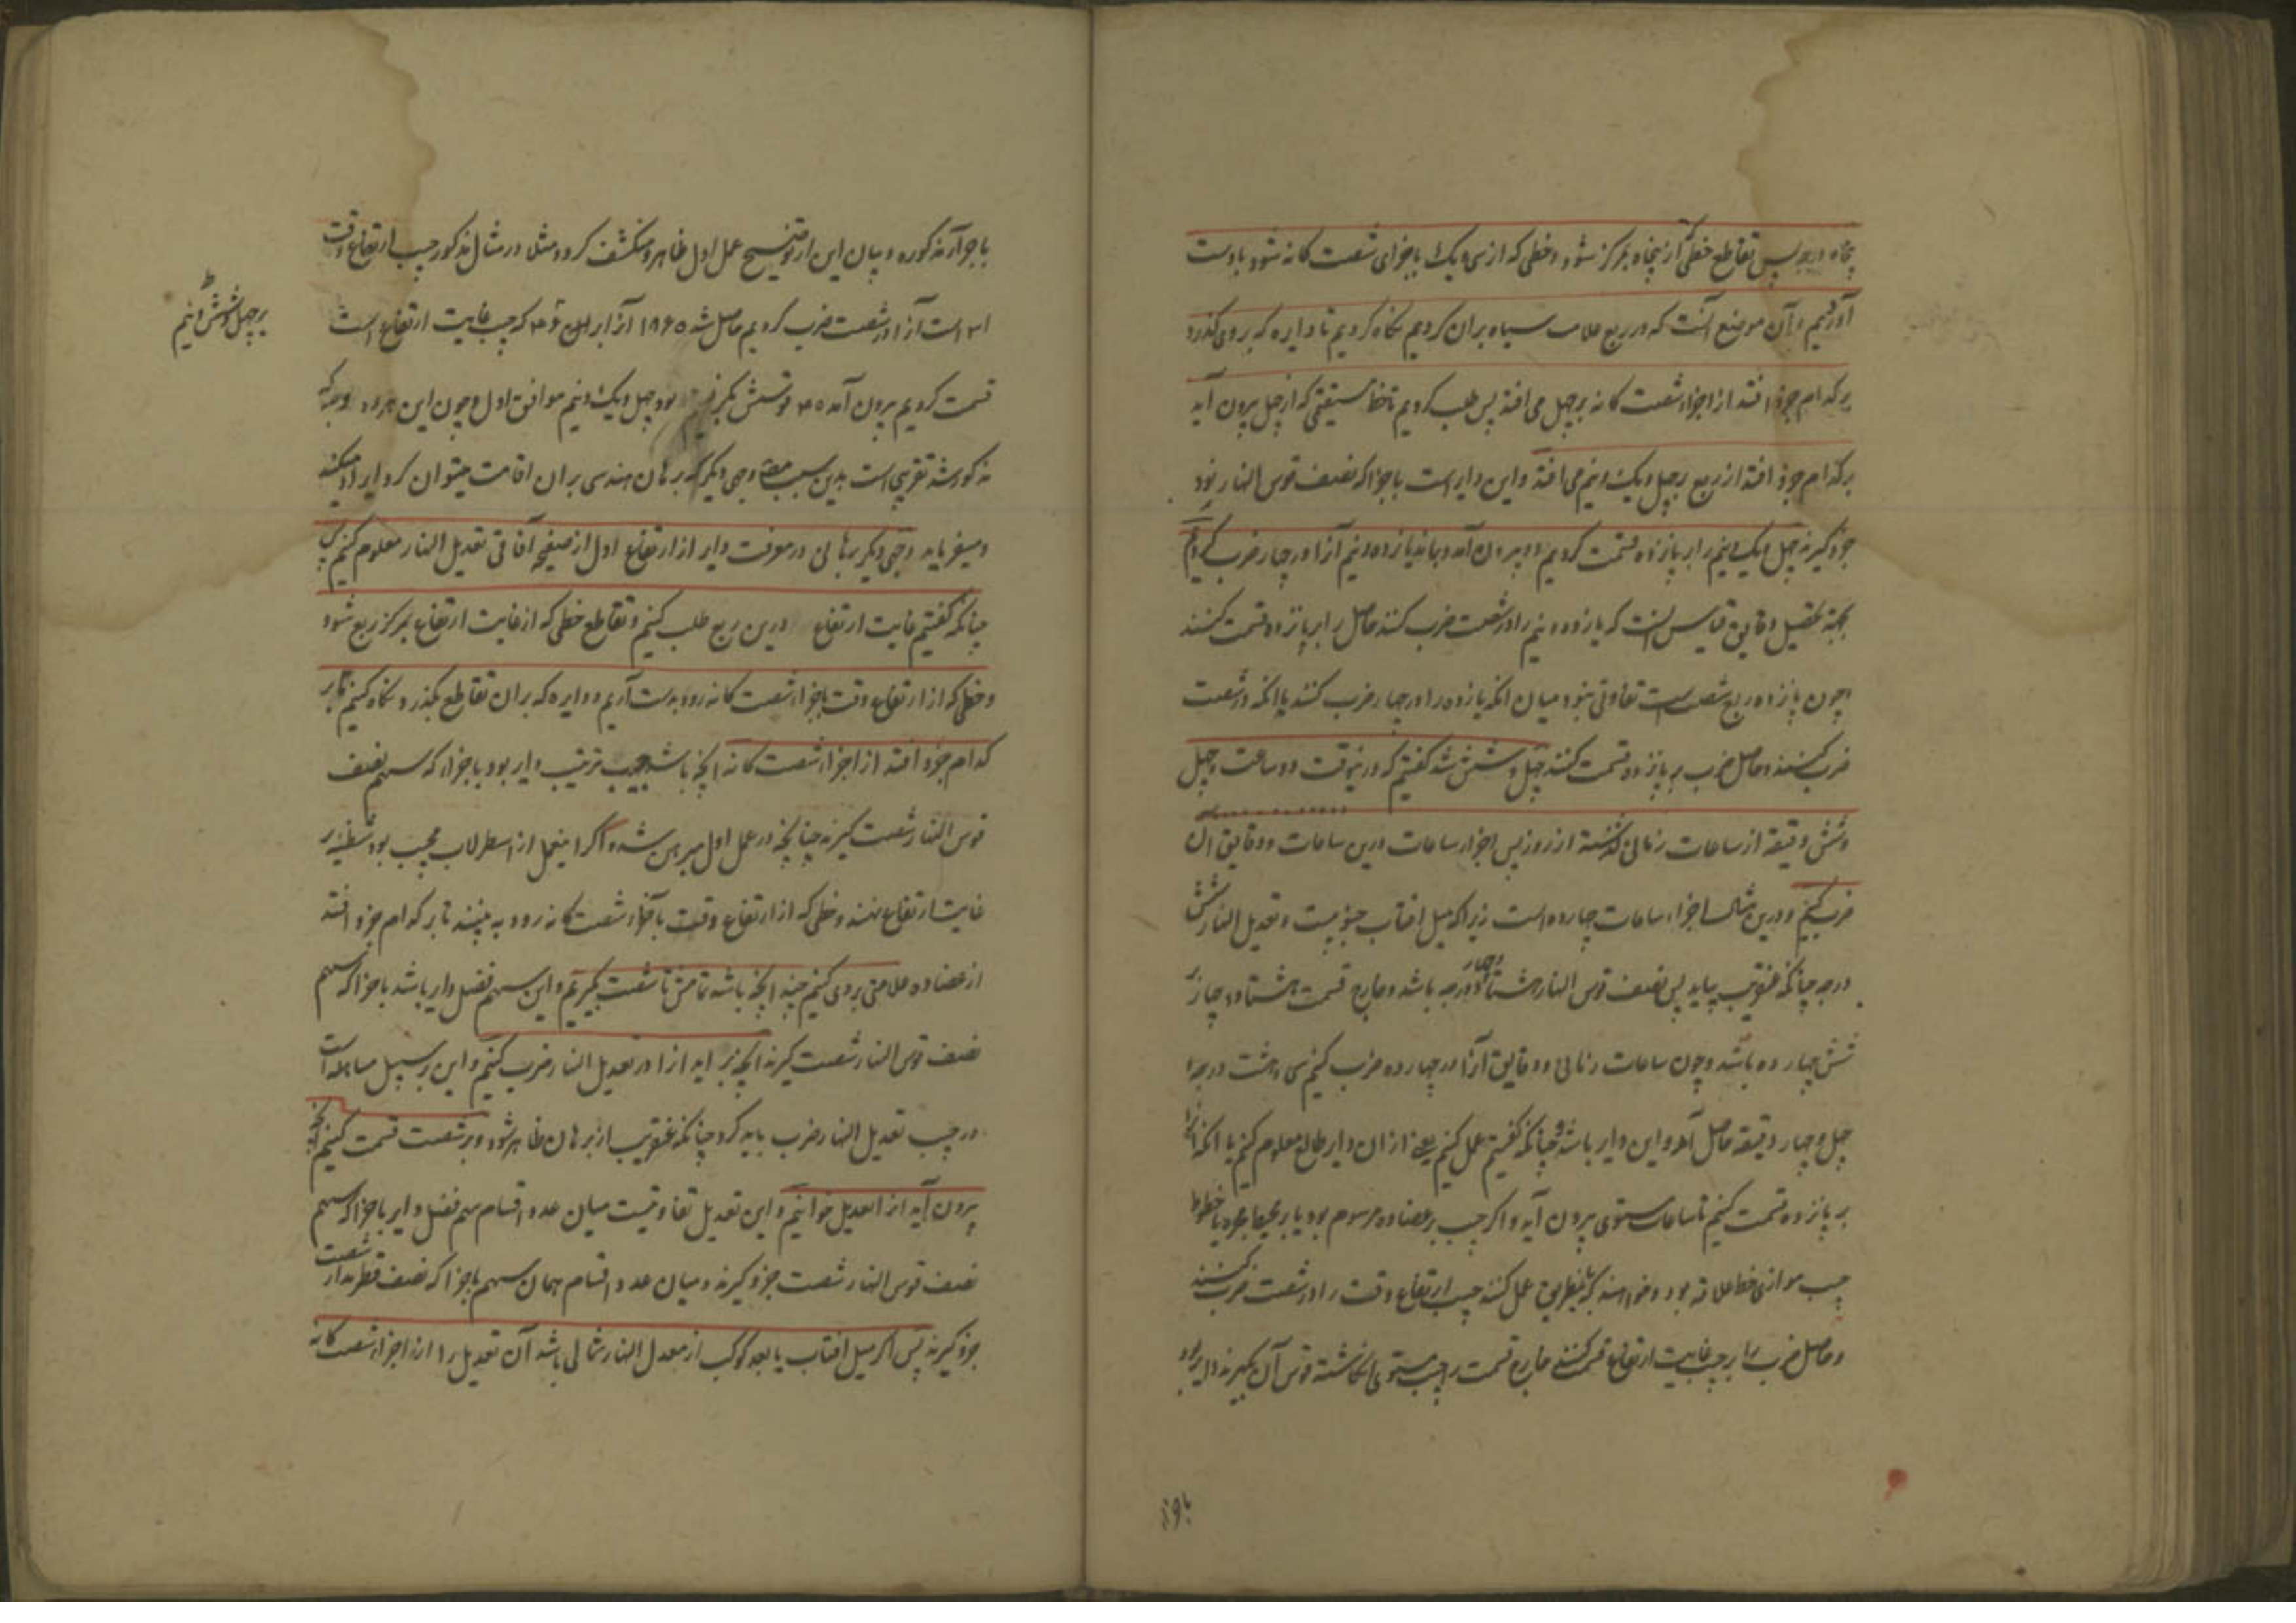 پنجاه درجه پس تقاطع خطی که از پنجاه بمرکز شود و خطی که از سی و یک با جزای شصت کانه شود بدست
آوردیم و آن موضع آنست که در ربع علامت سیاه بران کردیم نکاه کردیم تا دایره که بر وی کذرد
بر کدام جزو افتد از اجزاء شصت کانه بر چهل می افتد پس طلب کردیم تا خط مستقیمی که از چهل بیرون آید
بر کدام جزو افتد از ربع بر چهل و یک و نیم می افتد و این دایر است باجزا که نصف قوس النهار نود
جزو کیرند چهل و یک و نیم را بر پانزده قسمت کردیم دو بیرون آمد و بماند یازده و نیم آنرا در چهار ضرب کردیم
بجهة تحصیل دقایق قیاس آنست که یازده و نیم را در شصت ضرب کنند حاصل را بر پانزده قسمت کنند
و چون پانزده ربع شصت است تفاوتی نبود میان آنکه یازده را در چهار ضرب کنند یا آنکه در شصت
ضرب کنند و حاصل ضرب بر پانزده قسمت کنند چهل و شش شد کفتیم که درین وقت دو ساعت و چهل
و شش دقیقه از ساعات زمانی کذشته از روز پس اجزاء ساعات درین ساعات و دقایق آن
ضرب کنیم و درین مثال اجزاء ساعات چهارده است زیرا که میل افتاب جنوبیست و تعدیل النهار شش
درجه چنانکه عنقریب بیاید پس نصف قوس النهار هشتاد و چهار درجه باشد و خارج قسمت هشتاد و چهار بر
شش چهارده باشد و چون ساعات زمانی و دقایق آنرا در چهارده ضرب کنیم سی و هشت درجه و
چهل و چهار دقیقه حاصل آمد و این دایر باشد و چنانکه کفتیم عمل کنیم یعنی از ان دایر طالع معلوم کنیم یا آنکه آنرا
بر پانزده قسمت کنیم تا ساعات مستوی بیرون آید و اکر جیب بر عضاده مرسوم بود یا بر خطوط
جیب موازی خط علاقه بود و خواهند که باین طریق عمل کنند جیب ارتفاع وقت را در شصت ضرب کنند
و حاصل ضرب را بر جیب غایت ارتفاع قسمت کنند خارج قسمت را جیب مستوی انکاشته قوس آن بکیرند دایر بود
باجزاء
باجزاء مذکوره و بیان این از توضیح عمل اول ظاهر و منکشف کردد مثلا در مثال مذکور جیب ارتفاع وقت
۳۱ است آنرا در شصت ضرب کردیم حاصل شد ۱۸۶۰ آنرا بر ۴۶ که جیب غایت ارتفاع است
بر چهل و شش و نیم
قسمت کردیم بیرون آمد ۴۰ قوسش بکرفتیم بود چهل و یک و نیم موافق اول و چون این هر دو وجه که
مذکور شد تقریبی است بدین سبب مصنف وجهی دیکر که برهان هندسی بران اقامت میتوان کرد ایراد میکند
و میفرماید وجهی دیکر برهانی در معرفت دایر از ارتفاع اول از صفیحه آفاقی تعدیل النهار معلوم کنیم پس
چنانکه کفتیم غایت ارتفاع درین ربع طلب کنیم و تقاطع خطی که از غایت ارتفاع بمرکز ربع شود
و خطی که از ارتفاع وقت باجزاء شصت کانه رود بدست آریم و دایره که بران تقاطع بکذرد نکاه کنیم تا بر
کدام جزو افتد از اجزاء شصت کانه آنچه باشد جیب ترتیب دایر بود باجزاء که سهم نصف
قوس النهار شصت کیرند چنانچه در عمل اول مبرهن شد و اکر این عمل از اسطرلاب مجیب بود شظیه بر
غایت ارتفاع نهند و خطی که از ارتفاع وقت باجزاء شصت کانه رود به بینند تا بر کدام جزو افتد
از عضاده علامتی بر وی کنیم جیب آنچه باشد تمامش تا شصت بکیریم و این سهم فضل دایر باشد باجزا که سهم
نصف قوس النهار شصت کیرند آنچه بر آید آنرا در تعدیل النهار ضرب کنیم و این بر سبیل مساهله است
در جیب تعدیل النهار ضرب باید کرد چنانکه عنقریب از برهان ظاهر شود و بر شصت قسمت کنیم آنچه
بیرون آید آنرا تعدیل خوانیم و این تعدیل تفاوتیست میان عدد اقسام سهم فضل دایر باجزا که سهم
نصف قوس النهار شصت جزو کیرند و میان عدد اقسام همان سهم باجزا که نصف قطر مدار شصت
جزو کیرند پس اکر میل افتاب یا بعد کوکب از معدل النهار شمالی باشد آن تعدیل را از اجزاء شصت کانه